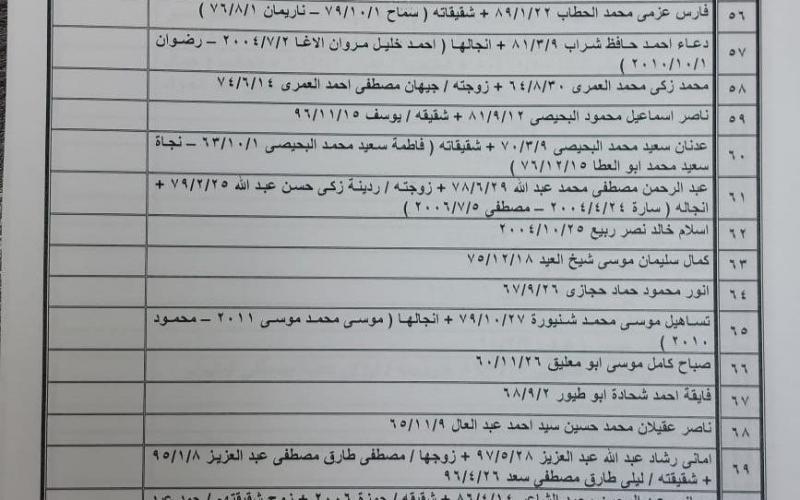 ٥٦ فارس عزمى محمد الحطاب ٨٩/١/٢٢ + شقيقاته ( سماح ٧٩/١٠/١ – ناريمان ٧٦/٨/١ )
٥٧ دعاء احمد حافظ شراب ٨١/٣/٩ + انجالها ( احمد خليل مروان الاغا ٢٠٠٤/٧/٢ – رضوان
٢٠١٠/١٠/١ )
٥٨ محمد زكى محمد العمرى ٦٤/٨/٣٠ + زوجته / جيهان مصطفى احمد العمرى ٧٤/٦/١٤
٥٩ ناصر اسماعيل محمود البحيصى ٨١/٩/١٢ + شقيقه / يوسف ٩٦/١١/١٥
٦٠ عدنان سعيد محمد البحيصى ٧٠/٣/٩ + شقيقاته ( فاطمة سعيد محمد البحيصى ٦٣/١٠/١ – نجاة
سعيد محمد ابو العطا ٧٦/١٢/١٥ )
٦١ عبد الرحمن مصطفى محمد عبد الله ٧٨/٦/٢٩ + زوجته / ردينة زكى حسن عبد الله ٧٩/٢/٢٥ +
انجاله ( سارة ٢٠٠٤/٤/٢٤ – مصطفى ٢٠٠٦/٧/٥ )
٦٢ اسلام خالد نصر ربيع ٢٠٠٤/١٠/٢٥
٦٣ كمال سليمان موسى شيخ العيد ٧٥/١٢/١٨
٦٤ انور محمود حماد حجازى ٦٧/٩/٢٦
٦٥ تساهيل موسى محمد شنيورة ٧٩/١٠/٢٧ + انجالها ( موسى محمد موسى ٢٠١١ – محمود
٢٠١٠ )
٦٦ صباح كامل موسى ابو معليق ٦٠/١١/٢٦
٦٧ فايقة احمد شحادة ابو طيور ٦٨/٩/٢
٦٨ ناصر عقيلان محمد حسين سيد احمد عبد العال ٦٥/١١/٩
٦٩ امانى رشاد عبد الله عبد العزيز ٩٧/٥/٢٨ + زوجها / مصطفى طارق مصطفى عبد العزيز ٩٥/١/٨
+ شقيقته / ليلى طارق مصطفى سعد ٩٦/٤/٢٦